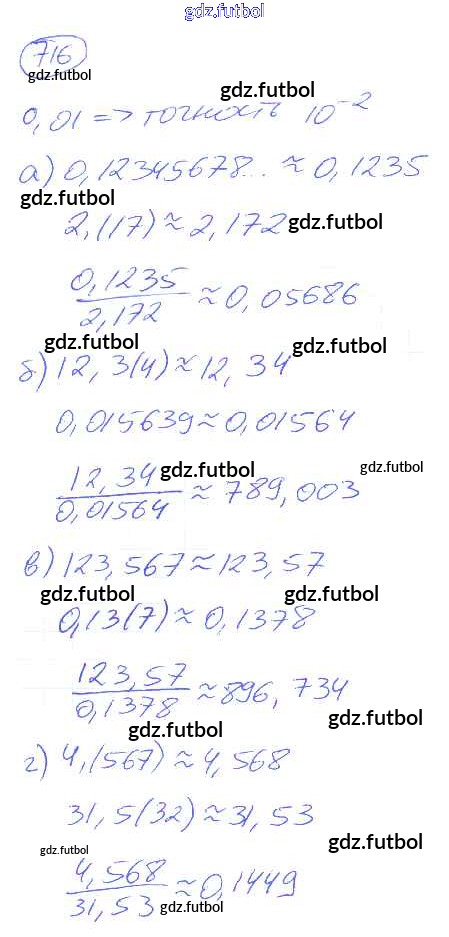 gdz.futbol
716
gdz.futbol
gdz.futbol
0,01 => точность 10^-2
а) 0,12345678... ≈ 0,1235
gdz.futbol
2,(17) ≈ 2,172 gdz.futbol
0,1235/2,172 ≈ 0,05686
gdz.futbol gdz.futbol
б) 12,3(4) ≈ 12,34
0,015639 ≈ 0,01564
gdz.futbol gdz.futbol
12,34/0,01564 ≈ 789,003
в) 123,567 ≈ 123,57
gdz.futbol gdz.futbol
0,13(7) ≈ 0,1378
123,57/0,1378 ≈ 896,734
gdz.futbol
gdz.futbol
г) 4,(567) ≈ 4,568
31,5(32) ≈ 31,53
gdz.futbol
gdz.futbol
4,568/31,53 ≈ 0,1449
gdz.futbol